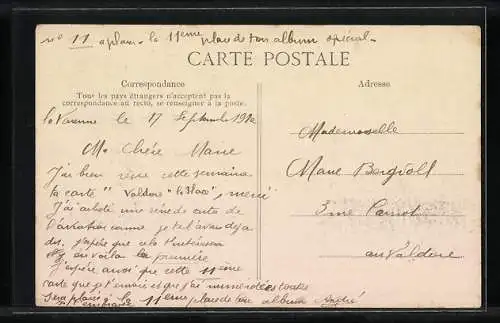 n° 11 a placer - la 11ème place de ton album spécial -
CARTE POSTALE
Correspondance
Tous les pays étrangers n'acceptent pas la
correspondance au recto, se renseigner à la poste.
Adresse
la Varenne le 17 Septembre 19
Ma Chère Marie
J'ai bien reçue cette semaine
ta carte "Valdoie" la Place", merci
J'ai acheté une série de carte de
l'aviation comme je te l'avais déjà
dis. J'espère que cela t'intéressera
en voilà la première
J'espère aussi que cette 11ème
carte que je t'envoie et que j'ai numérotée
Sera placée à la 11ème place de ton album
Mademoiselle
Marie
Rue Carnot
au Valdoie